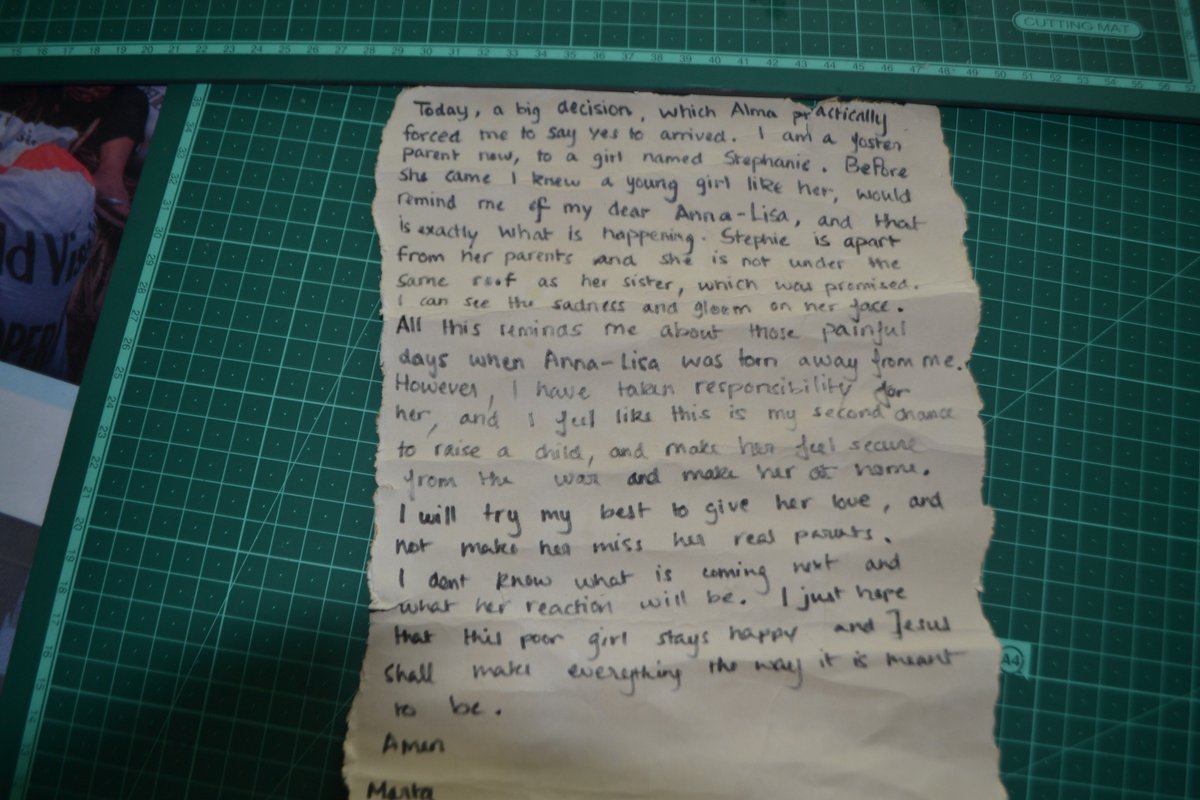 CUTTING MAT
15 16 17 18 19 20 21 22 23 24 25 26 27 28 29 30 31 32 33 34 35 36 37 38 39 40 41 42 43 44 45 46 47 48 49 50 51 52 53 54 55 56
Today, a big decision, which Alma practically
forced me to say yes to arrived. I am a foster
parent now, to a girl named Stephanie. Before
she came I knew a young girl like her, would
remind me of my dear Anna-Lisa, and that
is exactly what is happening. Stephie is apart
from her parents and she is not under the
same roof as her sister, which was promised.
I can see the sadness and gloom on her face.
All this reminds me about those painful
days when Anna-Lisa was torn away from me.
However, I have taken responsibility for
her, and I feel like this is my second chance
to raise a child, and make her feel secure
from the war and make her at home.
I will try my best to give her love, and
not make her miss her real parents.
I dont know what is coming next and
what her reaction will be. I just hope
that this poor girl stays happy and Jesus
shall make everything the way it is meant
to be.
Amen
Marta
35
34
33
32
31
30
29
28
27
26
25
24
23
22
21
20
19
18
17
16
15
14
A4